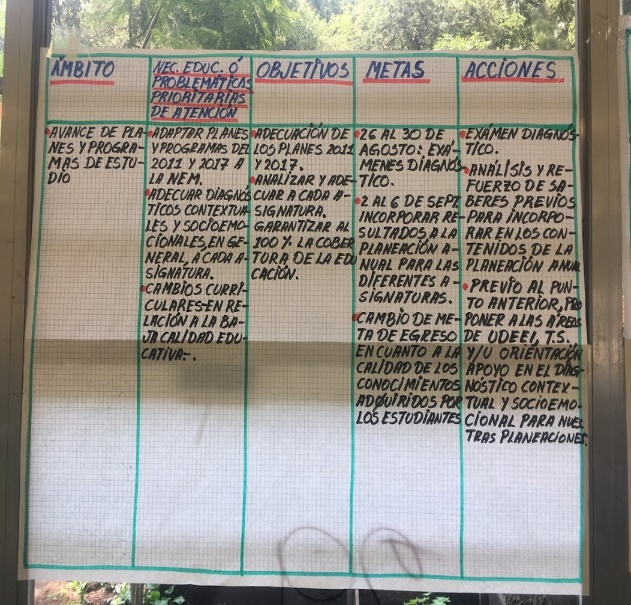 ÁMBITO
AVANCE DE PLA-
NES Y PROGRA-
MAS DE ESTU-
DIO
NEC. EDUC. Ó
PROBLEMÁTICAS
PRIORITARIAS
DE ATENCIÓN
ADAPTAR PLANES
Y PROGRAMAS DEL
2011 Y 2017 A
LA NEM.
ADECUAR DIAGNÓS
TICOS CONTEXTUA-
LES Y SOCIOEMO-
CIONALES, EN GE-
NERAL, A CADA A-
SIGNATURA.
CAMBIOS CURRI-
CULARES EN RE-
LACIÓN A LA BA-
JA CALIDAD EDU-
CATIVA.
OBJETIVOS
ADECUACIÓN DE
LOS PLANES 2011
Y 2017.
ANALIZAR Y ADE-
CUAR A CADA A-
SIGNATURA.
GARANTIZAR AL
100% LA COBER
TURA DE LA EDU
CACIÓN.
METAS
26 AL 30 DE
AGOSTO: EXÁ-
MENES DIAGNÓS-
TICO.
2 AL 6 DE SEPT.
INCORPORAR RE-
SULTADOS A LA
PLANEACIÓN A-
NUAL PARA LAS
DIFERENTES A-
SIGNATURAS.
CAMBIO DE ME-
TA DE EGRESO
EN CUANTO A LA
CALIDAD DE LOS
CONOCIMIENTOS
ADQUIRIDOS POR
LOS ESTUDIANTES
ACCIONES
EXÁMEN DIAGNÓS-
TICO.
ANÁLISIS Y RE-
FUERZO DE SA-
BERES PREVIOS
PARA INCORPO-
RAR EN LOS CON-
TENIDOS DE LA
PLANEACIÓN ANUAL
PREVIO AL PUN-
TO ANTERIOR, PRO
PONER A LAS ÁREAS
DE UDEEI, T.S.
Y/U ORIENTACIÓN
APOYO EN EL DIAG-
NÓSTICO CONTEX-
TUAL Y SOCIOEMO-
CIONAL PARA NUES
TRAS PLANEACIONES.